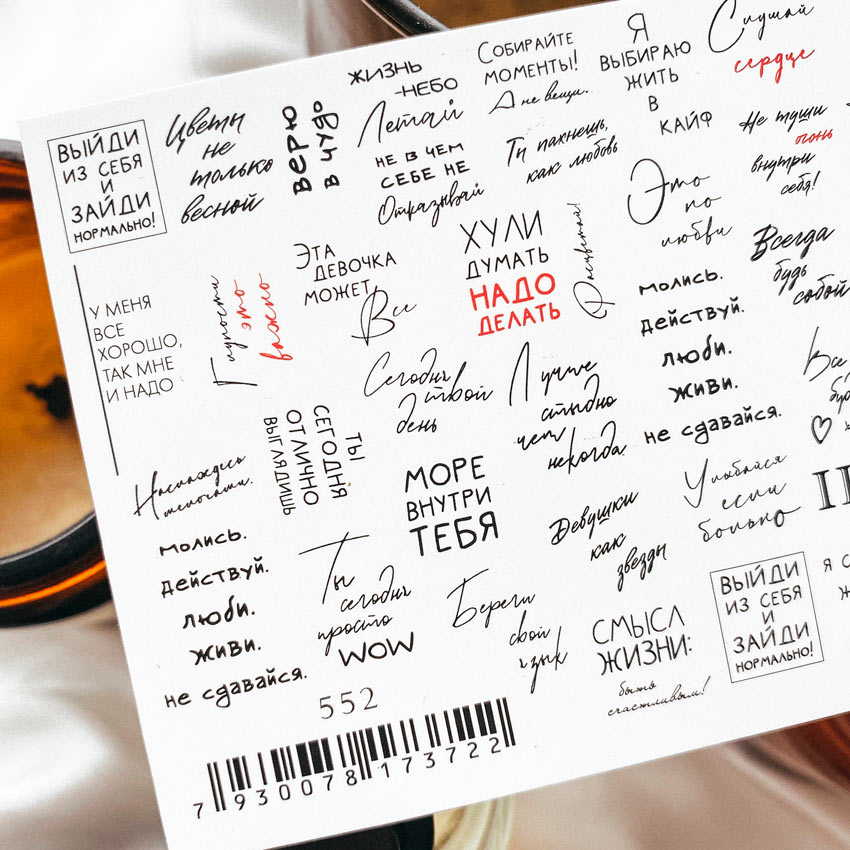 ВЫЙДИ
ИЗ СЕБЯ
И
ЗАЙДИ
НОРМАЛЬНО!
Цветы
не
только
весной
ВЕРЮ
В ЧУДО
ЖИЗНЬ
-НЕБО
Летай
НЕ В ЧЕМ
СЕБЕ НЕ
Отказывай
СОБИРАЙТЕ
МОМЕНТЫ!
А не вещи.
Ты пахнешь,
как любовь
Я
ВЫБИРАЮ
ЖИТЬ
В
КАЙФ
Слушай
сердце
Не туши
огонь
внутри
себя!
У МЕНЯ
ВСЕ
ХОРОШО,
ТАК МНЕ
И НАДО
Глупости
это
важно
ЭТА
ДЕВОЧКА
МОЖЕТ
Все
ХУЛИ
ДУМАТЬ
НАДО
ДЕЛАТЬ
Расцветай!
Это
по
любви
Всегда
будь
собой
молись.
действуй.
люби.
живи.
не сдавайся.
Сегодня
твой
день
Лучше
стыдно
чем
никогда.
Все
Наслаждесь
мелочами.
ТЫ
СЕГОДНЯ
ОТЛИЧНО
ВЫГЛЯДИШЬ
МОРЕ
ВНУТРИ
ТЕБЯ
Девушки
как
звезды
Улыбайся
если
больно
молись.
действуй.
люби.
живи.
не сдавайся.
Ты
сегодня
просто
WOW
Береги
свой
язык
СМЫСЛ
ЖИЗНИ:
быть
счастливым!
ВЫЙДИ
ИЗ СЕБЯ
И
ЗАЙДИ
НОРМАЛЬНО!
552
7 930078 173722